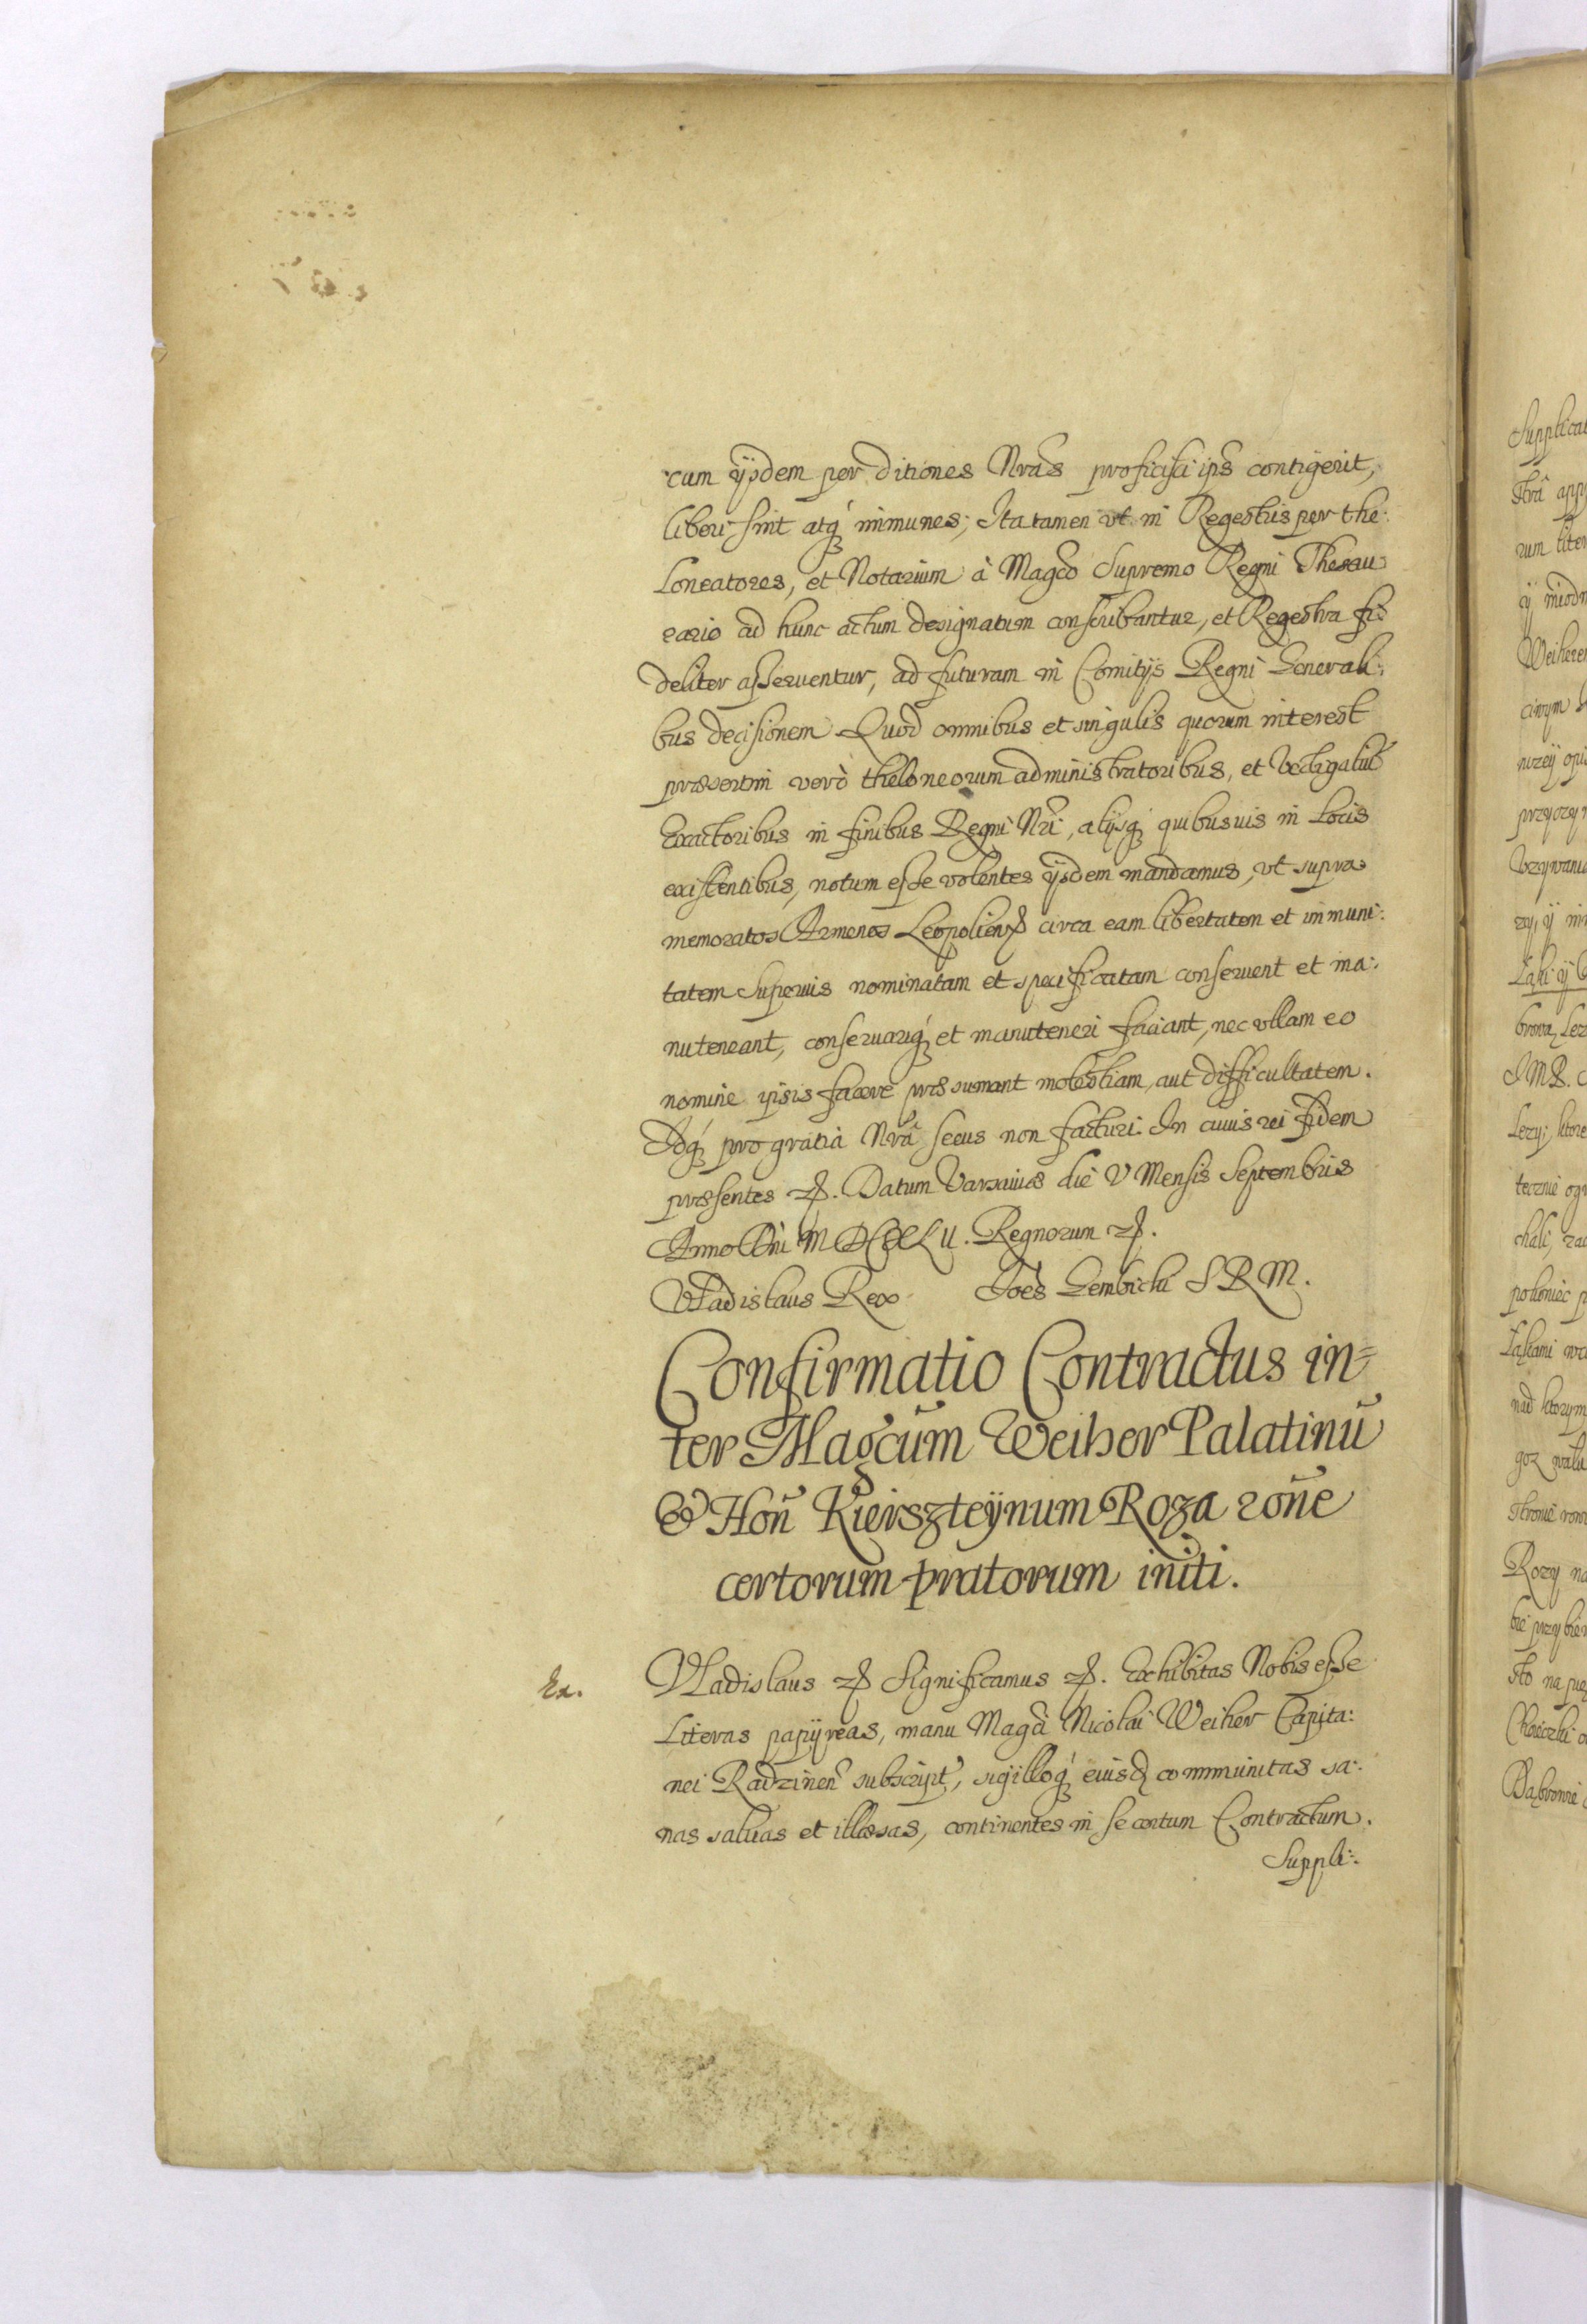 cum ijsdem per ditiones Nras proficisci ips contigerit,
liberi sint atq immunes; Ita tamen vt in Regestris per the:
loneatores, et Notarium à Magco Supremo Regni Thesau
rario ad hunc actum designatum conscribantur, et Regestra fi:
deliter asseruentur, ad futuram in Comitijs Regni Generali:
bus decisionem Quod omnibus et singulis quorum interest
præsertim verò theloneorum administratoribus, et Vectigaliũ
Exactoribus in finibus Regni Nri, alijsq quibusuis in Locis
existentibus, notum esse volentes ijsdem mandamus, vt supra
memoratos Armenos Leopolien circa eam libertatem et immuni:
tatem Superius nominatam et specificatam conseruent et ma:
nuteneant, conseruariq et manuteneri faciant, nec vllam eo
nomine ipsis facere præsumant molestiam, aut difficultatem.
Idq pro gratia Nrâ secus non facturi. In cuius rei fidem
præsentes etc. Datum Varsauiæ die V Mensis Septembris
Anno Dni MDCXLII. Regnorum etc.
Vladislaus Rex Joes Gembicki S R M.
Confirmatio Contractus in=
ter Magcũm Weiher Palatinũ
& Hoñ Kierszteynum Roza roñe
certorum pratorum initi.
Ex.
Vladislaus etc Significamus etc. Exhibitas Nobis esse
Literas papyreas, manu Magci Nicolai Weiher Capita:
nei Radzinen subscript, sigilloq eiusd communitas sa:
nas saluas et illæsas, continentes in se certum Contractum.
Suppli: